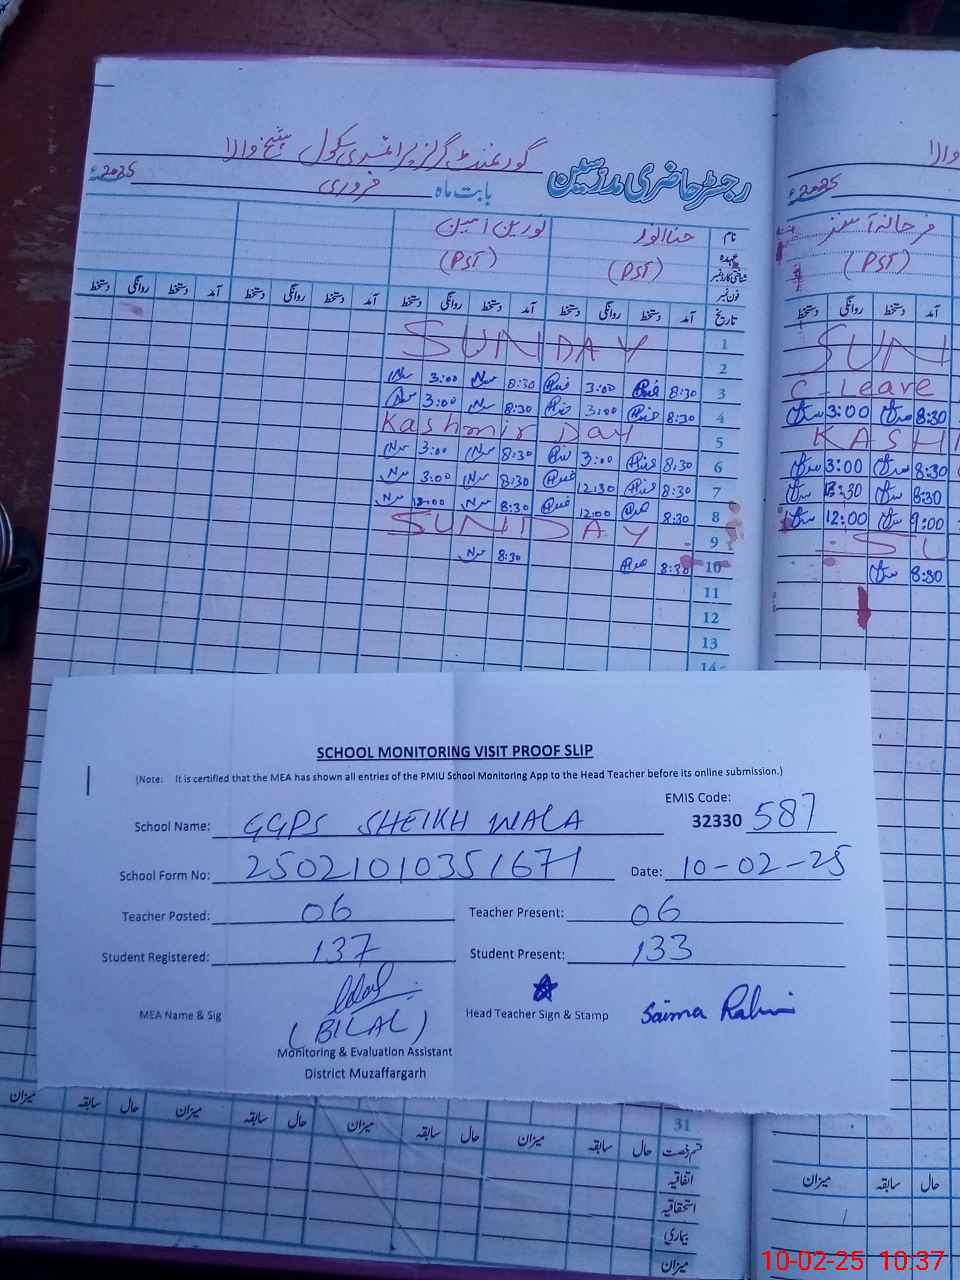 گورنمنٹ گرلز پرائمری سکول شیخ والا
رجسٹر حاضری مدرسین
بابت ماہ فروری 2025ء
والا
2025ء
نام حنا انور نورین امین
عہدہ (PST) (PST)
شناختی کارڈ نمبر
فون نمبر
فرحانہ
(PST)
تاریخ آمد دستخط روانگی دستخط آمد دستخط روانگی دستخط آمد دستخط روانگی دستخط آمد دستخط روانگی دستخط
آمد دستخط روانگی دستخط
1
SUNDAY
SUN
2
3:00 8:30 3:00 8:30 3
C. Leave
3:00 8:30 3:00 8:30 4
3:00 8:30
Kashmir Day 5
KASH
3:00 8:30 3:00 8:30 6
3:00 8:30
3:00 8:30 12:30 8:30 7
8:30
12:00 8:30 12:00 8:30 8
12:00 9:00
SUNDAY 9
SU
8:30 8:30 10
8:30
11
12
13
14
SCHOOL MONITORING VISIT PROOF SLIP
(Note: It is certified that the MEA has shown all entries of the PMIU School Monitoring App to the Head Teacher before its online submission.)
EMIS Code:
School Name: GGPS SHEIKH WALA 32330 587
School Form No: 25021010351671 Date: 10-02-25
Teacher Posted: 06 Teacher Present: 06
Student Registered: 137 Student Present: 133
MEA Name & Sig (BILAL) Head Teacher Sign & Stamp Saima Rahim
Monitoring & Evaluation Assistant
District Muzaffargarh
31
قسم رخصت حال سابقہ میزان حال سابقہ میزان حال سابقہ میزان حال سابقہ میزان
حال سابقہ میزان
اتفاقیہ
استحقاقیہ
بیماری
میزان
10-02-25 10:37